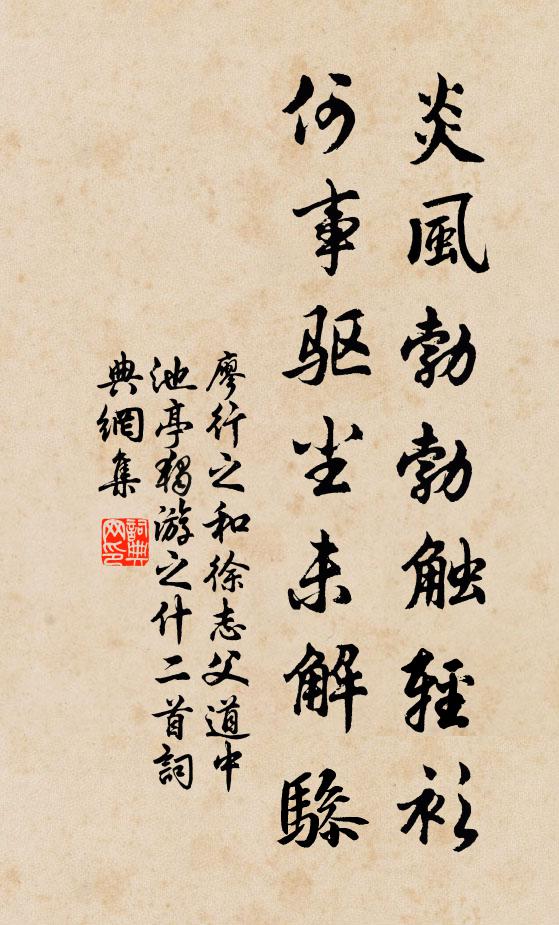 炎風勃勃触輕衫
何事驱尘未解驂
廖行之和徐志父道中
池亭獨游之什二首詞
典網集
詞典
网印